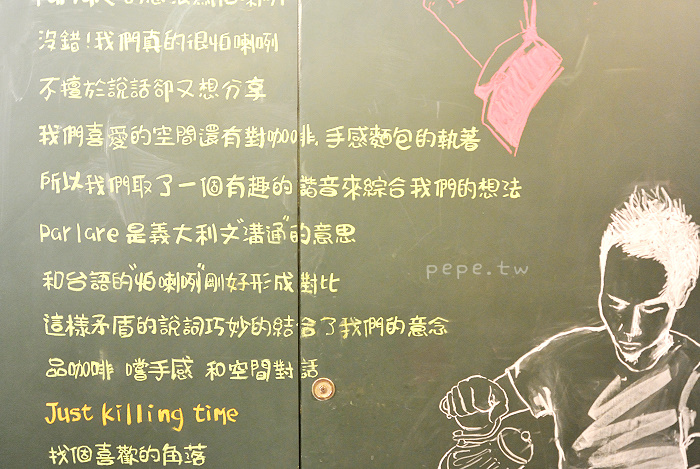 沒錯!我們真的很怕喇咧
不擅於說話卻又想分享
我們喜愛的空間還有對咖啡,手感麵包的執著
所以我們取了一個有趣的諧音來綜合我們的想法
parlare 是義大利文"溝通"的意思
和台語的"怕喇咧"剛好形成對比
這樣矛盾的說詞巧妙的結合了我們的意念
品咖啡 嚐手感 和空間對話
Just killing time
找個喜歡的角落
pepe.tw